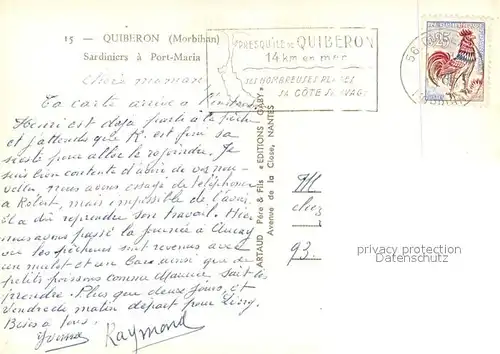 15 — QUIBERON (Morbihan)
Sardiniers à Port-Maria
PRESQU'ILE DE QUIBERON
14 km en mer
SES NOMBREUSES PLAGES
SA CÔTE SAUVAGE
56
chère maman
Ta carte arrive à l'instant
Henri est déjà parti à la pêche
et j'attends que R. est fini sa
sieste pour aller le rejoindre. Je
suis bien contente d'avoir de vos nou-
velles nous avons essayé de téléphoner
à Robert, mais impossible de l'avoir.
Il a dû reprendre son travail. Hier
nous avons passé la journée à
où les pêcheurs sont revenus avec
un mulet et un ainsi que de
petits poissons comme Maurice sait les
prendre. Plus que deux jours, et
vendredi matin départ pour
Bises à tous.
Yvonne Raymond
ARTAUD Père & Fils «EDITIONS GABY»
Avenue de la Close, NANTES
M
chez
93.
watermark protection
Datenschutz.